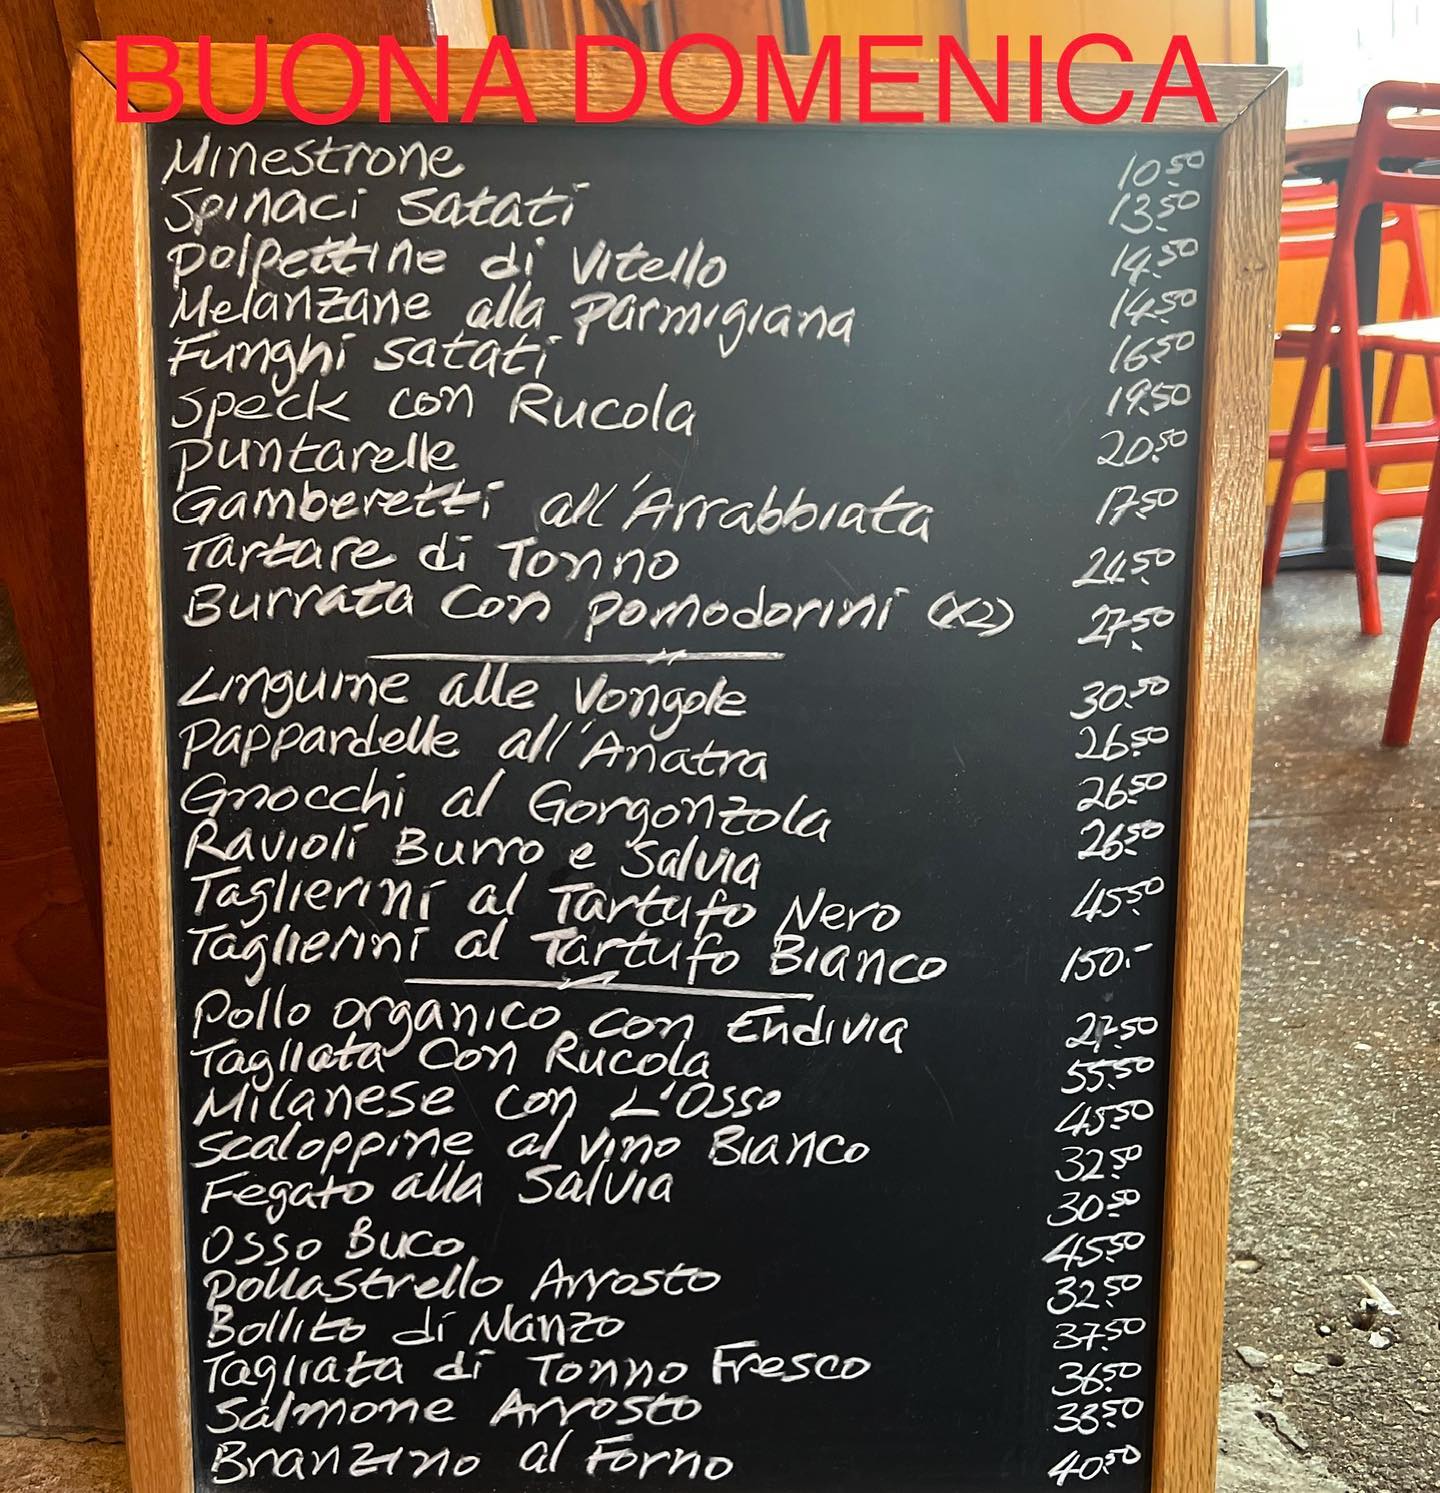 BUONA DOMENICA
Minestrone 10.50
Spinaci Satati 13.50
Polpettine di Vitello 14.50
Melanzane alla Parmigiana 14.50
Funghi Satati 16.50
Speck con Rucola 19.50
Puntarelle 20.50
Gamberetti all'Arrabbiata 17.50
Tartare di Tonno 24.50
Burrata Con Pomodorini (x2) 27.50
Linguine alle Vongole 30.50
Pappardelle all'Anatra 26.50
Gnocchi al Gorgonzola 26.50
Ravioli Burro e Salvia 26.50
Taglierini al Tartufo Nero 45.50
Taglierini al Tartufo Bianco 150.-
Pollo organico con Endivia 27.50
Tagliata Con Rucola 55.50
Milanese con L'Osso 45.50
Scaloppine al Vino Bianco 32.50
Fegato alla Salvia 30.50
Osso Buco 45.50
Pollastrello Arrosto 32.50
Bollito di Manzo 37.50
Tagliata di Tonno Fresco 36.50
Salmone Arrosto 33.50
Branzino al Forno 40.50